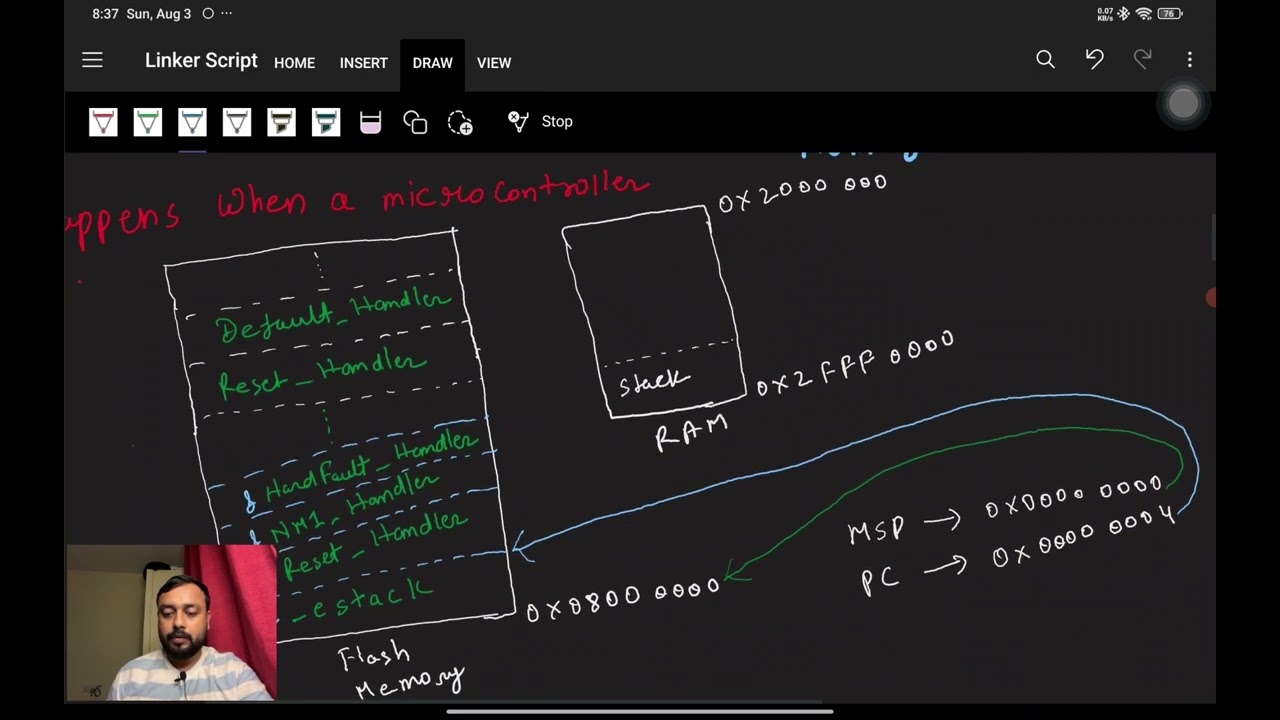 8:37 Sun, Aug 3
0.07
KB/s
76
Linker Script HOME INSERT DRAW VIEW
Stop
appens when a microcontroller
0x2000 000
Default_Handler
Reset_Handler
Stack
0x2FFF 0000
RAM
& HardFault_Handler
NMI_Handler
Reset_Handler
_estack
MSP → 0x0000 0000
PC → 0x0000 0004
0x0800 0000
Flash
Memory